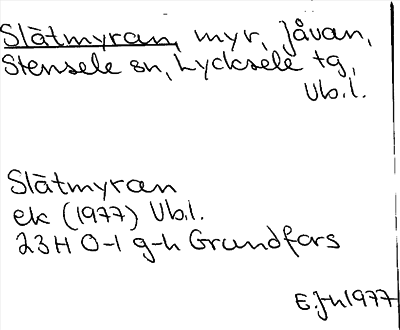 Slåtmyran, myr, Jåvan,
Stensele sn, Lycksele tg,
Vb.l.
Slåtmyran
ek (1977) Vb.l.
23H 0-1 g-h Grundfors
E. J-h 1977